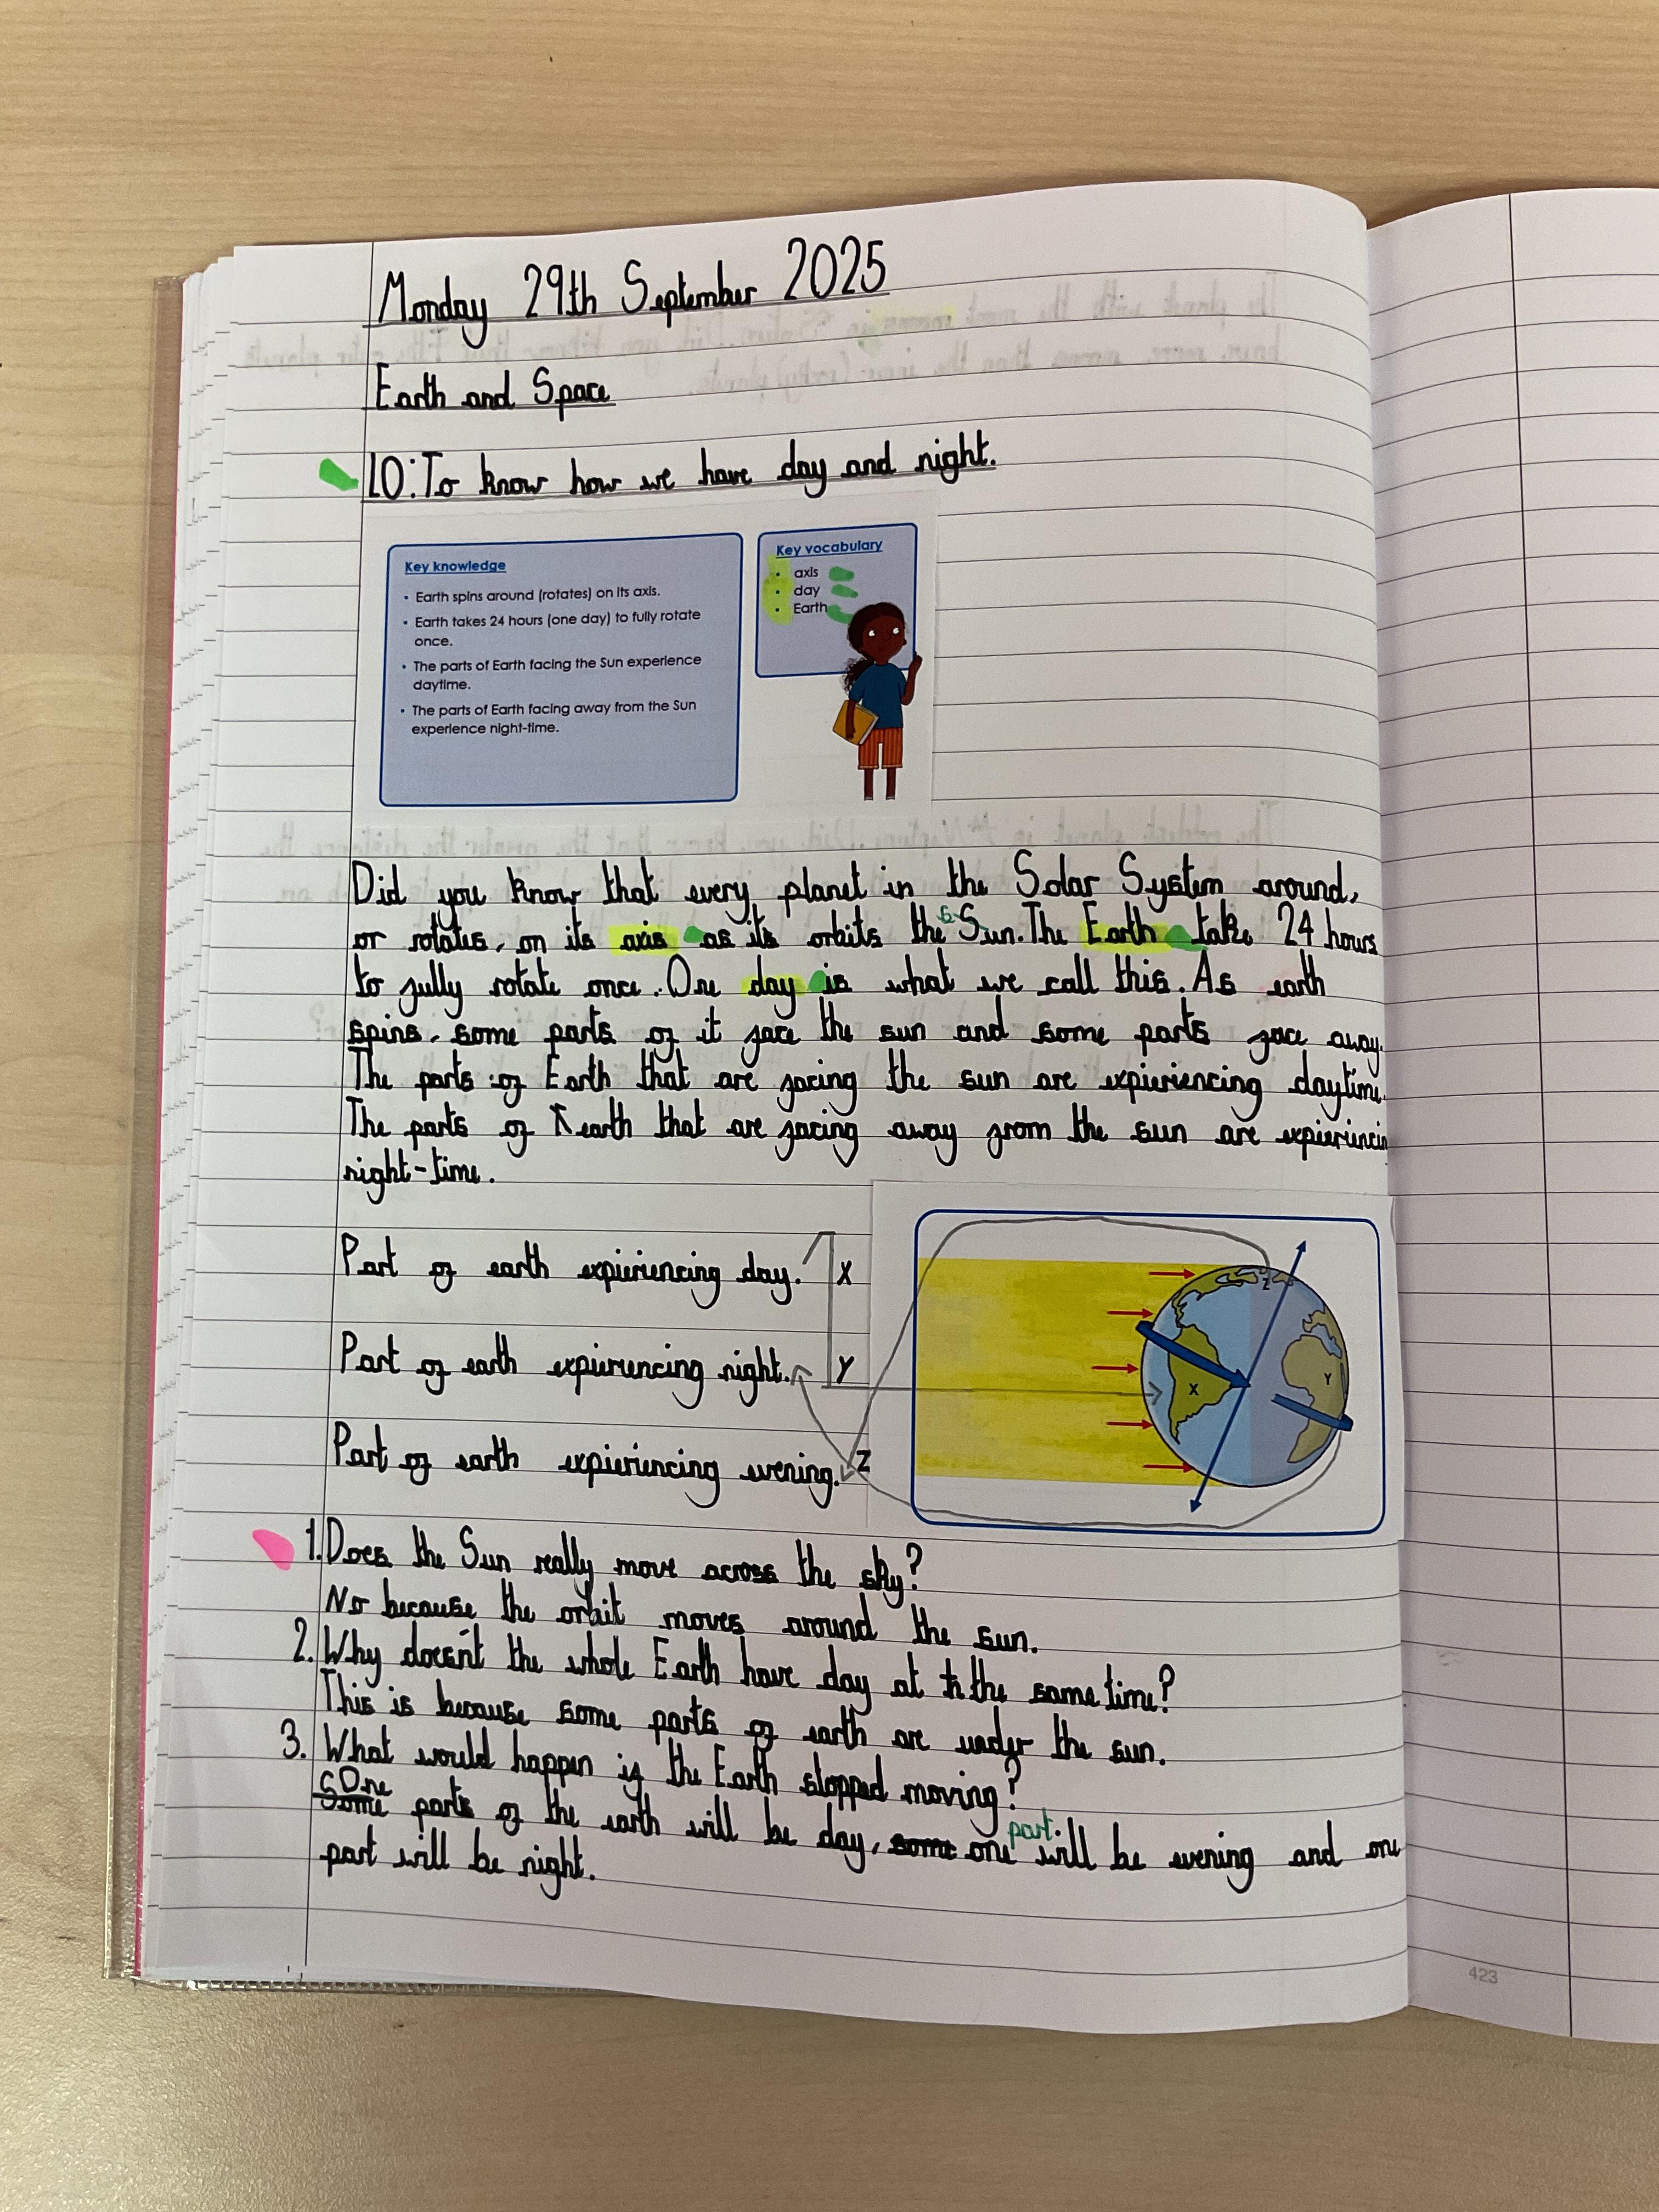 Monday 29th September 2025
Earth and Space
LO: To know how we have day and night.
Key knowledge
• Earth spins around (rotates) on its axis.
• Earth takes 24 hours (one day) to fully rotate
once.
• The parts of Earth facing the Sun experience
daytime.
• The parts of Earth facing away from the Sun
experience night-time.
Key vocabulary
• axis
• day
• Earth
Did you know that every planet in the Solar System around,
or rotates, on its axis as its orbits the Sun. The Earth take 24 hours
to fully rotate once. One day is what we call this. As earth
spins, some parts of it face the sun and some parts face away.
The parts of Earth that are facing the sun are expieriencing daytime.
The parts of earth that are facing away from the sun are expieriencin
night-time.
Part of earth expieriencing day. X
Part of earth expieriencing night. Y
Part of earth expieriencing evening. Z
Z
X
Y
1. Does the Sun really move across the sky?
No because the orbit moves around the sun.
2. Why doesn't the whole Earth have day at th the same time?
This is because some parts of earth are under the sun.
3. What would happen if the Earth stopped moving?
Some One parts of the earth will be day, some one part will be evening and one
part will be night.
423